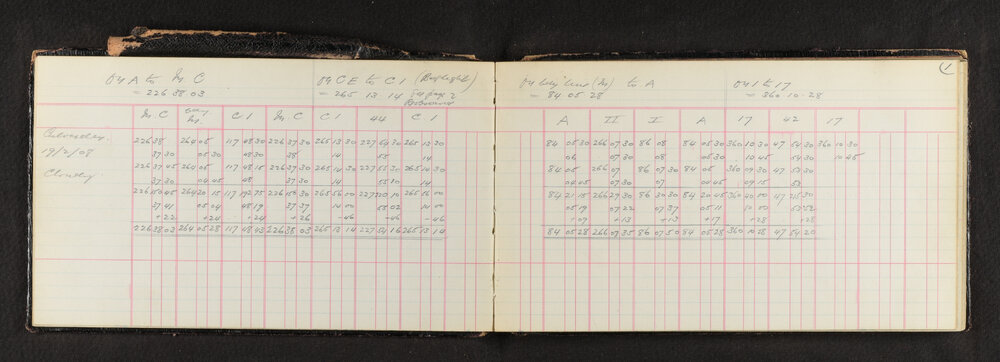 On A to Mt. C
= 226 38 03
On C E to C 1 (Bright light)
= 265 13 14
= 84 05 28
to A
On 1 to 17
= 360 - 10 - 28
1
Mt. C C 1 Mt. C C 1 44 C 1
A II I A 17 42 17
Wednesday
19/2/08
Cloudy
226 38 264 05 117 48 30 226 37 30 265 13 30 227 54 30 265 13 30
84 05 30 266 07 30 86 08 84 05 30 360 10 30 47 54 30 360 10 30
37 30 05 30 48 30 38 14 55 14
06 07 30 08 05 30 10 45 54 30 10 45
226 37 45 264 05 117 48 15 226 37 30 265 14 30
84 05 266 07 86 07 30 84 05 360 09 30 47 53 30
37 30 04 45 48 37 30 14 55 10 14
04 45 07 30 07 04 45 09 15 53
226 50 45 264 20 15 265 56 00 265 56 00
84 21 15 266 29 30 86 30 30 84 20 45 360 40 00
37 41 05 04 48 19 37 37 14 00 55 02 14 00
05 19 07 22 07 37 05 11
+22 +24 +24 +26 -46 -46 -46
+09 +13 +13 +17 +28 +28
226 38 03 264 05 28 117 48 43 226 38 03 265 13 14 227 54 16 265 13 14
84 05 28 266 07 35 86 07 50 84 05 28 360 10 28 47 54 20